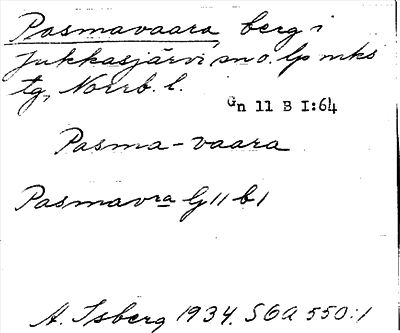 Pasmavaara, berg i
Jukkasjärvi sn o. lp mks
tg, Norrb. l.
Gn 11 B I:64
Pasma-vaara
Pasmavra G 11 b 1
A. Isberg 1934. SGA 550:1